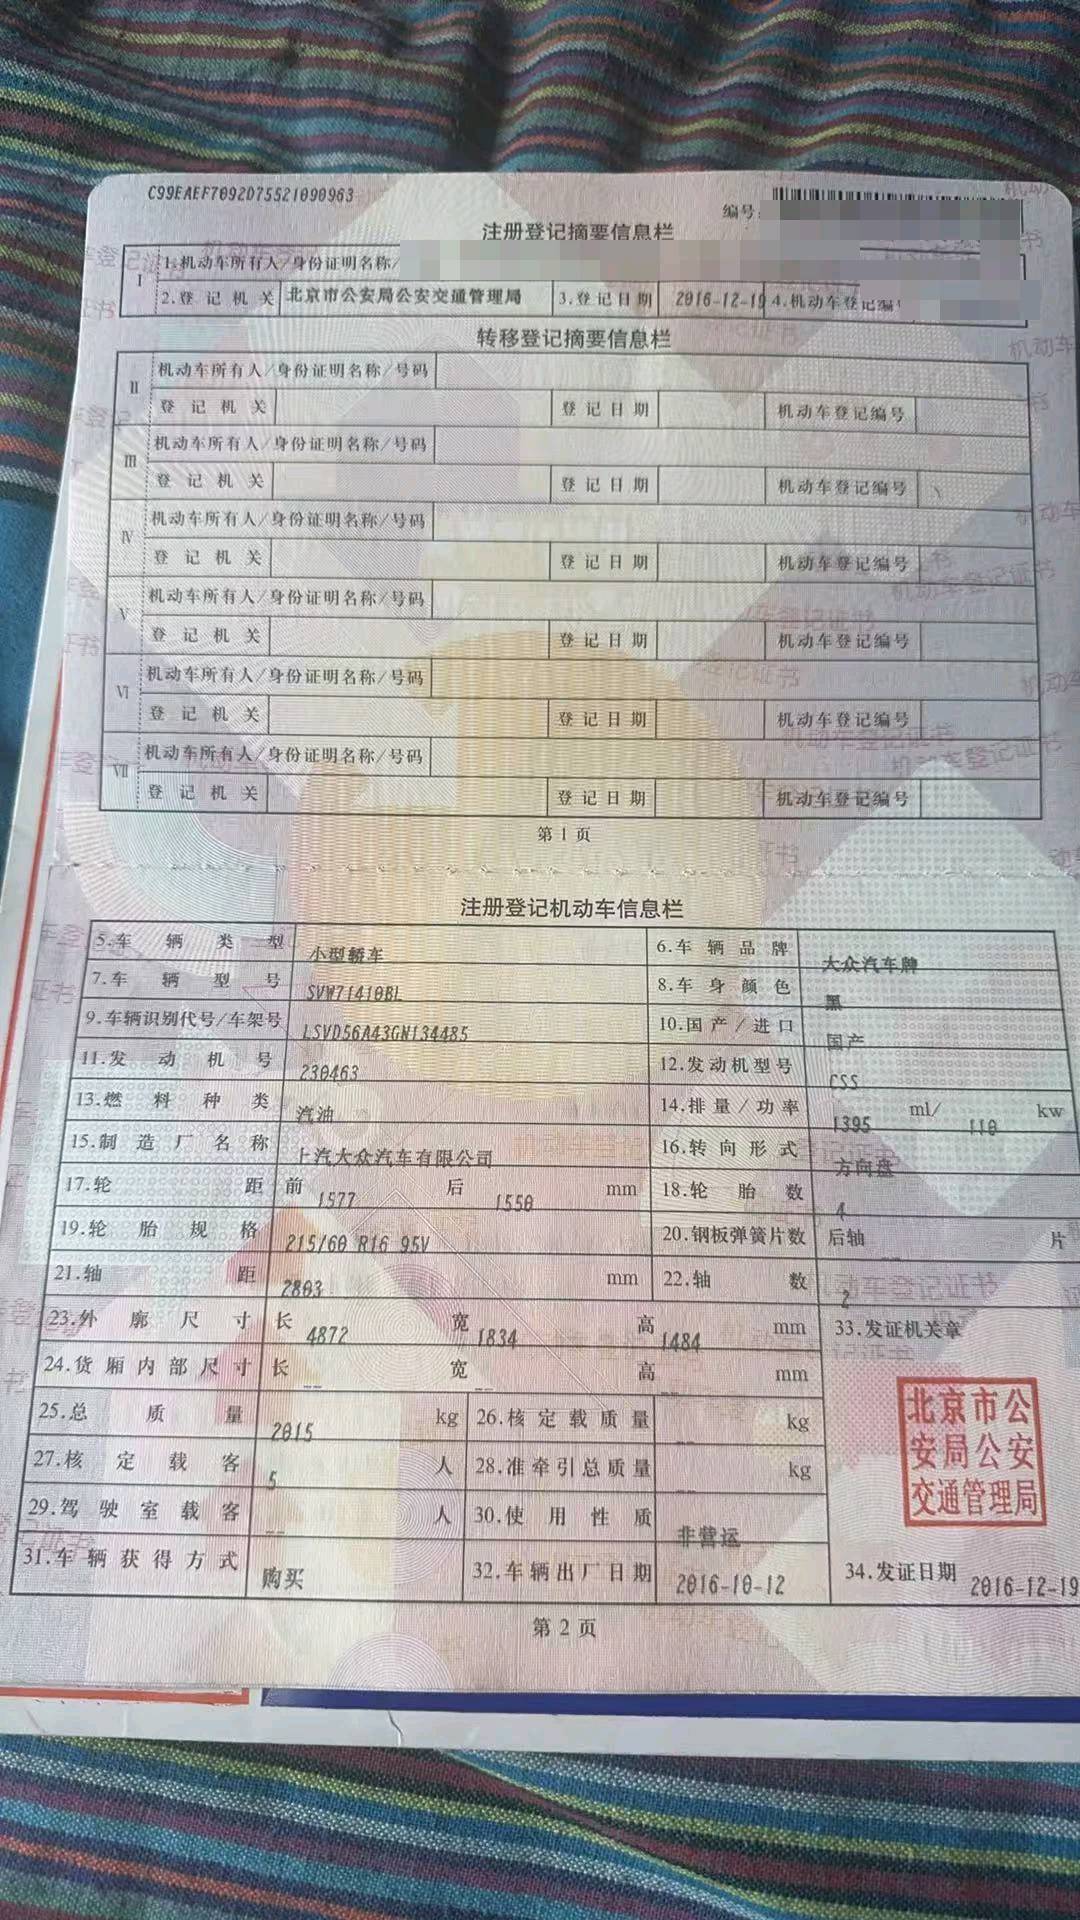 C99EAEF7092D75521090963
编号:
注册登记摘要信息栏
I 1.机动车所有人/身份证明名称/
2.登记机关 北京市公安局公安交通管理局 3.登记日期 2016-12-19 4.机动车登记编
转移登记摘要信息栏
II 机动车所有人/身份证明名称/号码
登记机关 登记日期 机动车登记编号
III 机动车所有人/身份证明名称/号码
登记机关 登记日期 机动车登记编号
IV 机动车所有人/身份证明名称/号码
登记机关 登记日期 机动车登记编号
V 机动车所有人/身份证明名称/号码
登记机关 登记日期 机动车登记编号
VI 机动车所有人/身份证明名称/号码
登记机关 登记日期 机动车登记编号
VII 机动车所有人/身份证明名称/号码
登记机关 登记日期 机动车登记编号
第1页
注册登记机动车信息栏
5.车辆类型 小型轿车 6.车辆品牌 大众汽车牌
7.车辆型号 SVW71410BL 8.车身颜色 黑
9.车辆识别代号/车架号 LSVD56A43GN134485 10.国产/进口 国产
11.发动机号 230463 12.发动机型号 CSS
13.燃料种类 汽油 14.排量/功率 1395 ml/ 110 kw
15.制造厂名称 上汽大众汽车有限公司 16.转向形式 方向盘
17.轮距 前 1577 后 1550 mm 18.轮胎数 4
19.轮胎规格 215/60 R16 95V 20.钢板弹簧片数 后轴 -- 片
21.轴距 2803 mm 22.轴数 2
23.外廓尺寸 长 4872 宽 1834 高 1484 mm 33.发证机关章
24.货厢内部尺寸 长 -- 宽 -- 高 -- mm
25.总质量 2015 kg 26.核定载质量 -- kg
27.核定载客 5 人 28.准牵引总质量 -- kg
北京市公
安局公安
交通管理局
29.驾驶室载客 -- 人 30.使用性质 非营运
31.车辆获得方式 购买 32.车辆出厂日期 2016-10-12 34.发证日期 2016-12-19
第2页